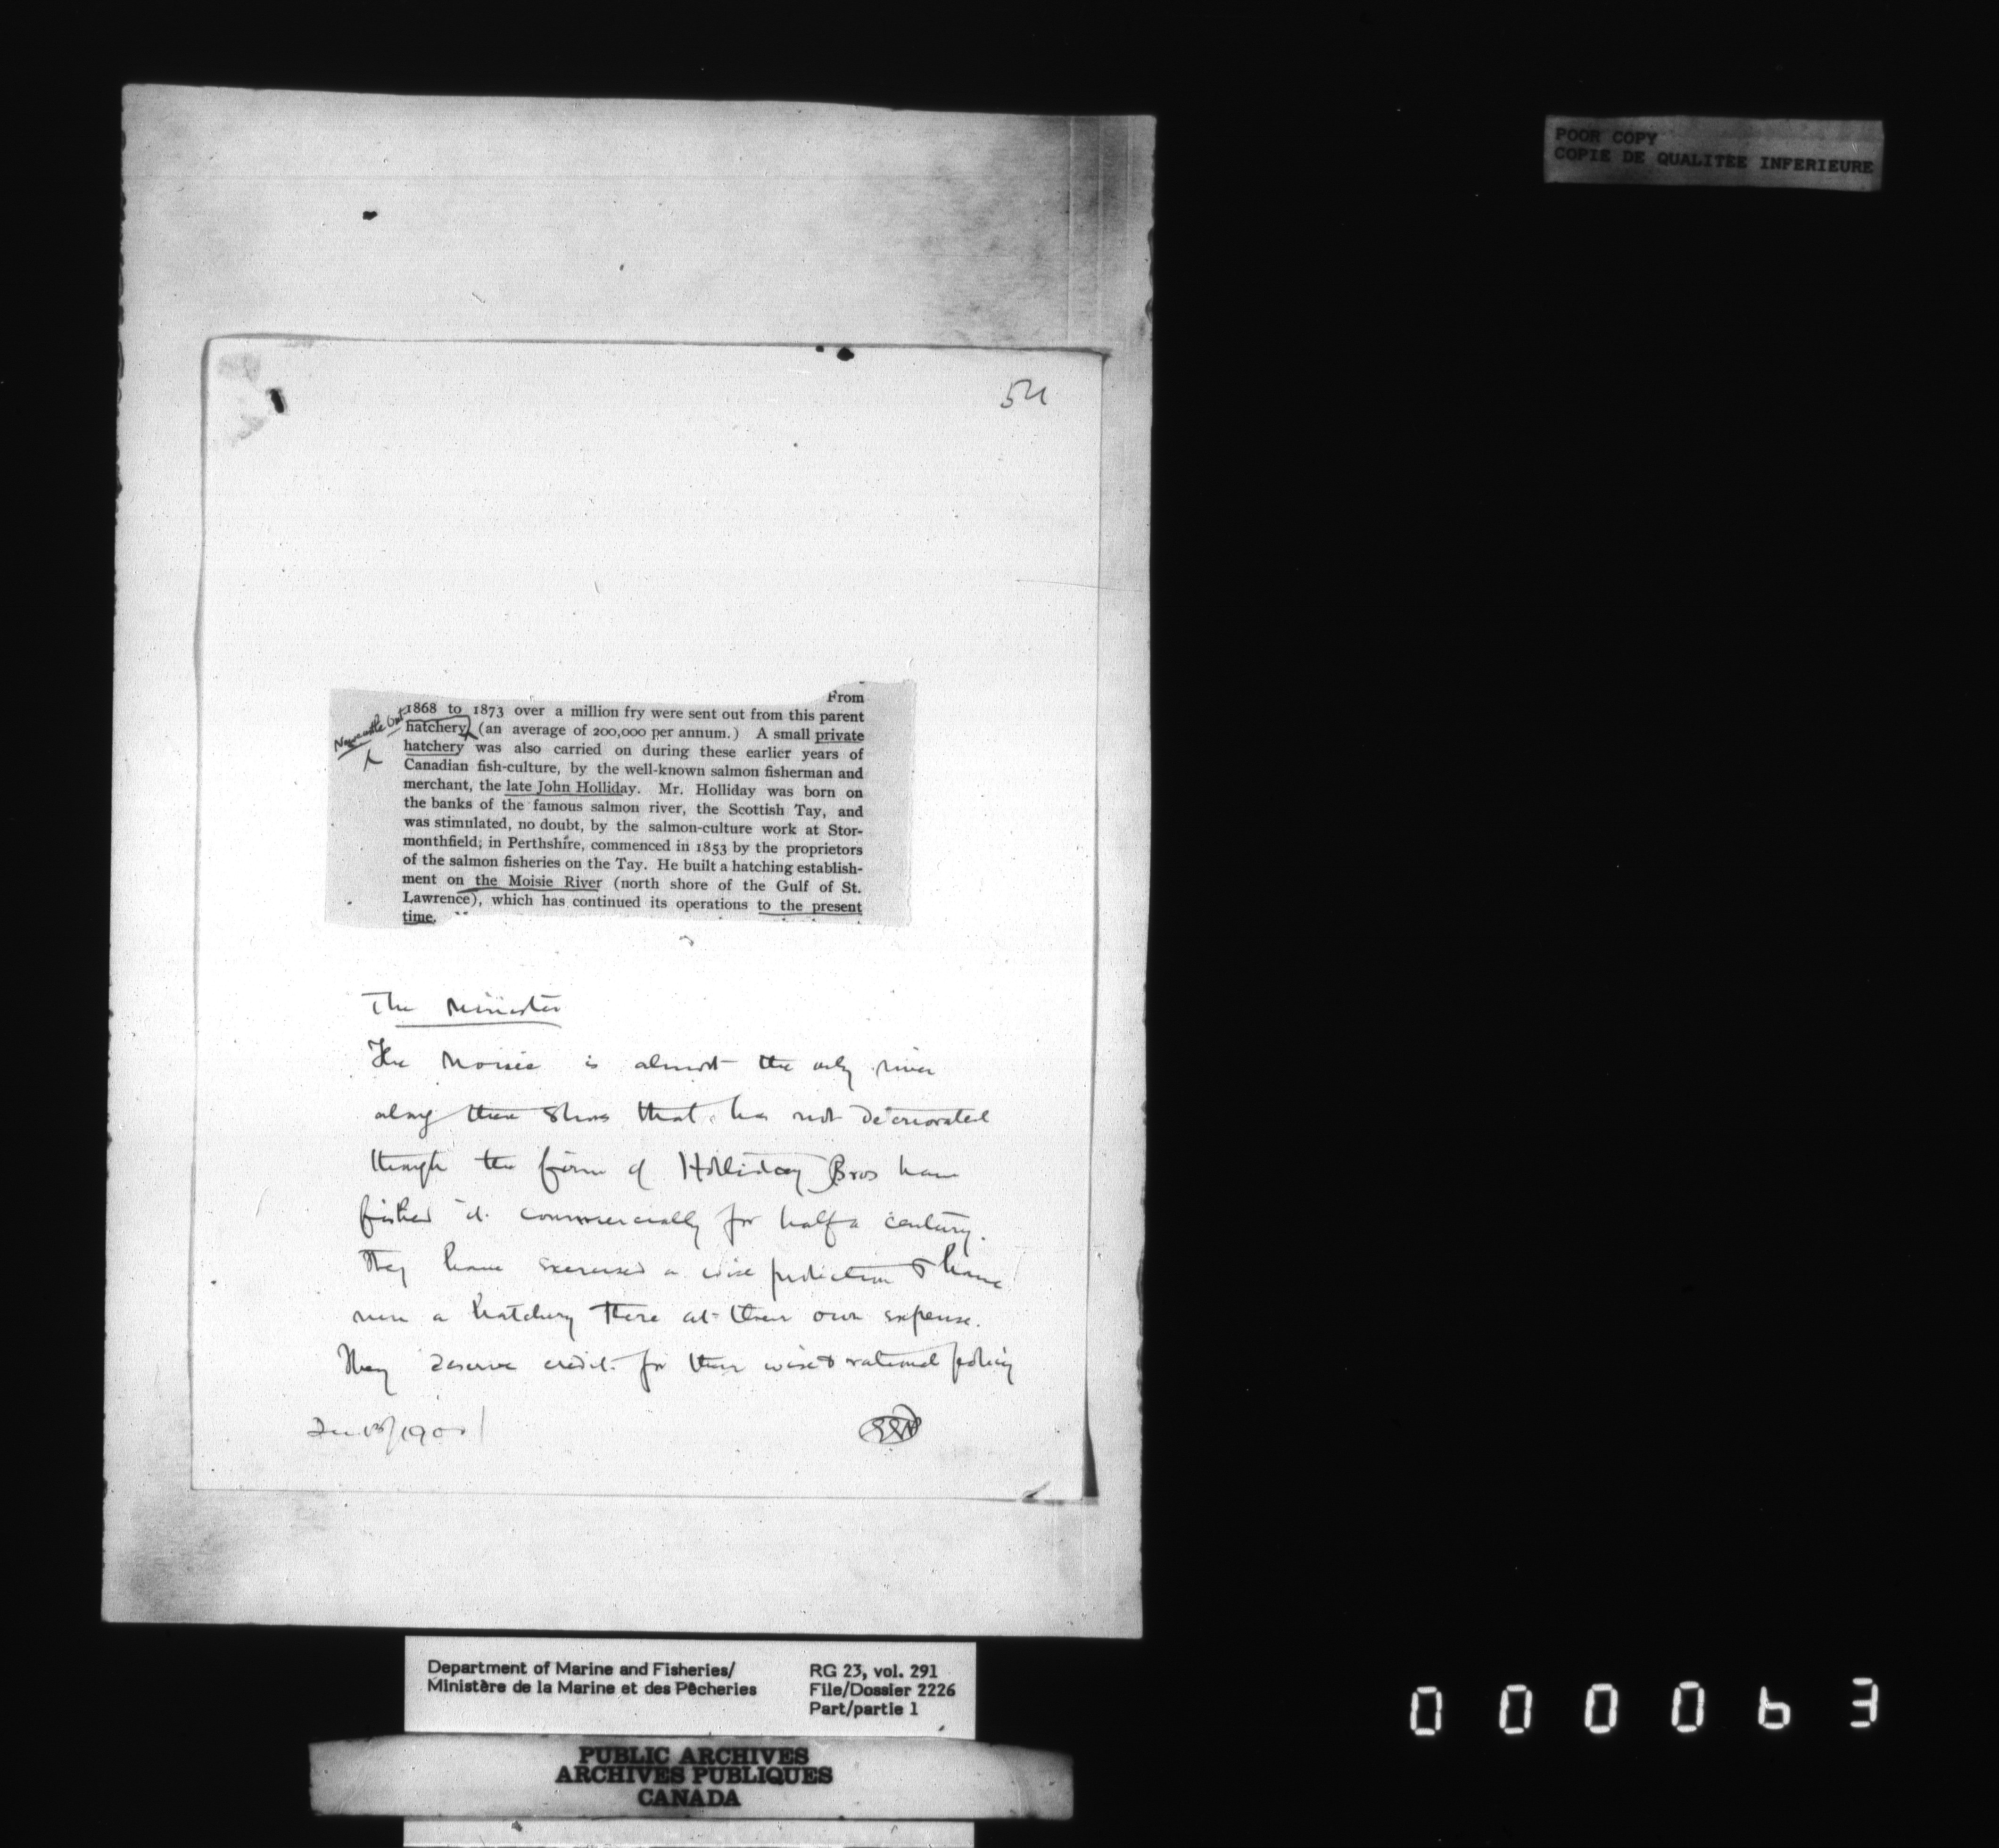 POOR COPY
COPIE DE QUALITEE INFERIEURE
54
From
1868 to 1873 over a million fry were sent out from this parent
Newcastle Ont
hatchery (an average of 200,000 per annum.) A small private
hatchery was also carried on during these earlier years of
Canadian fish-culture, by the well-known salmon fisherman and
merchant, the late John Holliday. Mr. Holliday was born on
the banks of the famous salmon river, the Scottish Tay, and
was stimulated, no doubt, by the salmon-culture work at Stor-
monthfield; in Perthshire, commenced in 1853 by the proprietors
of the salmon fisheries on the Tay. He built a hatching establish-
ment on the Moisie River (north shore of the Gulf of St.
Lawrence), which has continued its operations to the present
time.
The Minister
The Moisie is almost the only river
along these shores that has not deteriorated
though the firm of Holliday Bros have
fished it commercially for half a century.
They have exercised a wise protection & have
run a hatchery there at their own expense.
They deserve credit for their wise & rational policy
Department of Marine and Fisheries/
Ministère de la Marine et des Pêcheries
RG 23, vol. 291
File/Dossier 2226
Part/partie 1
PUBLIC ARCHIVES
ARCHIVES PUBLIQUES
CANADA
000063